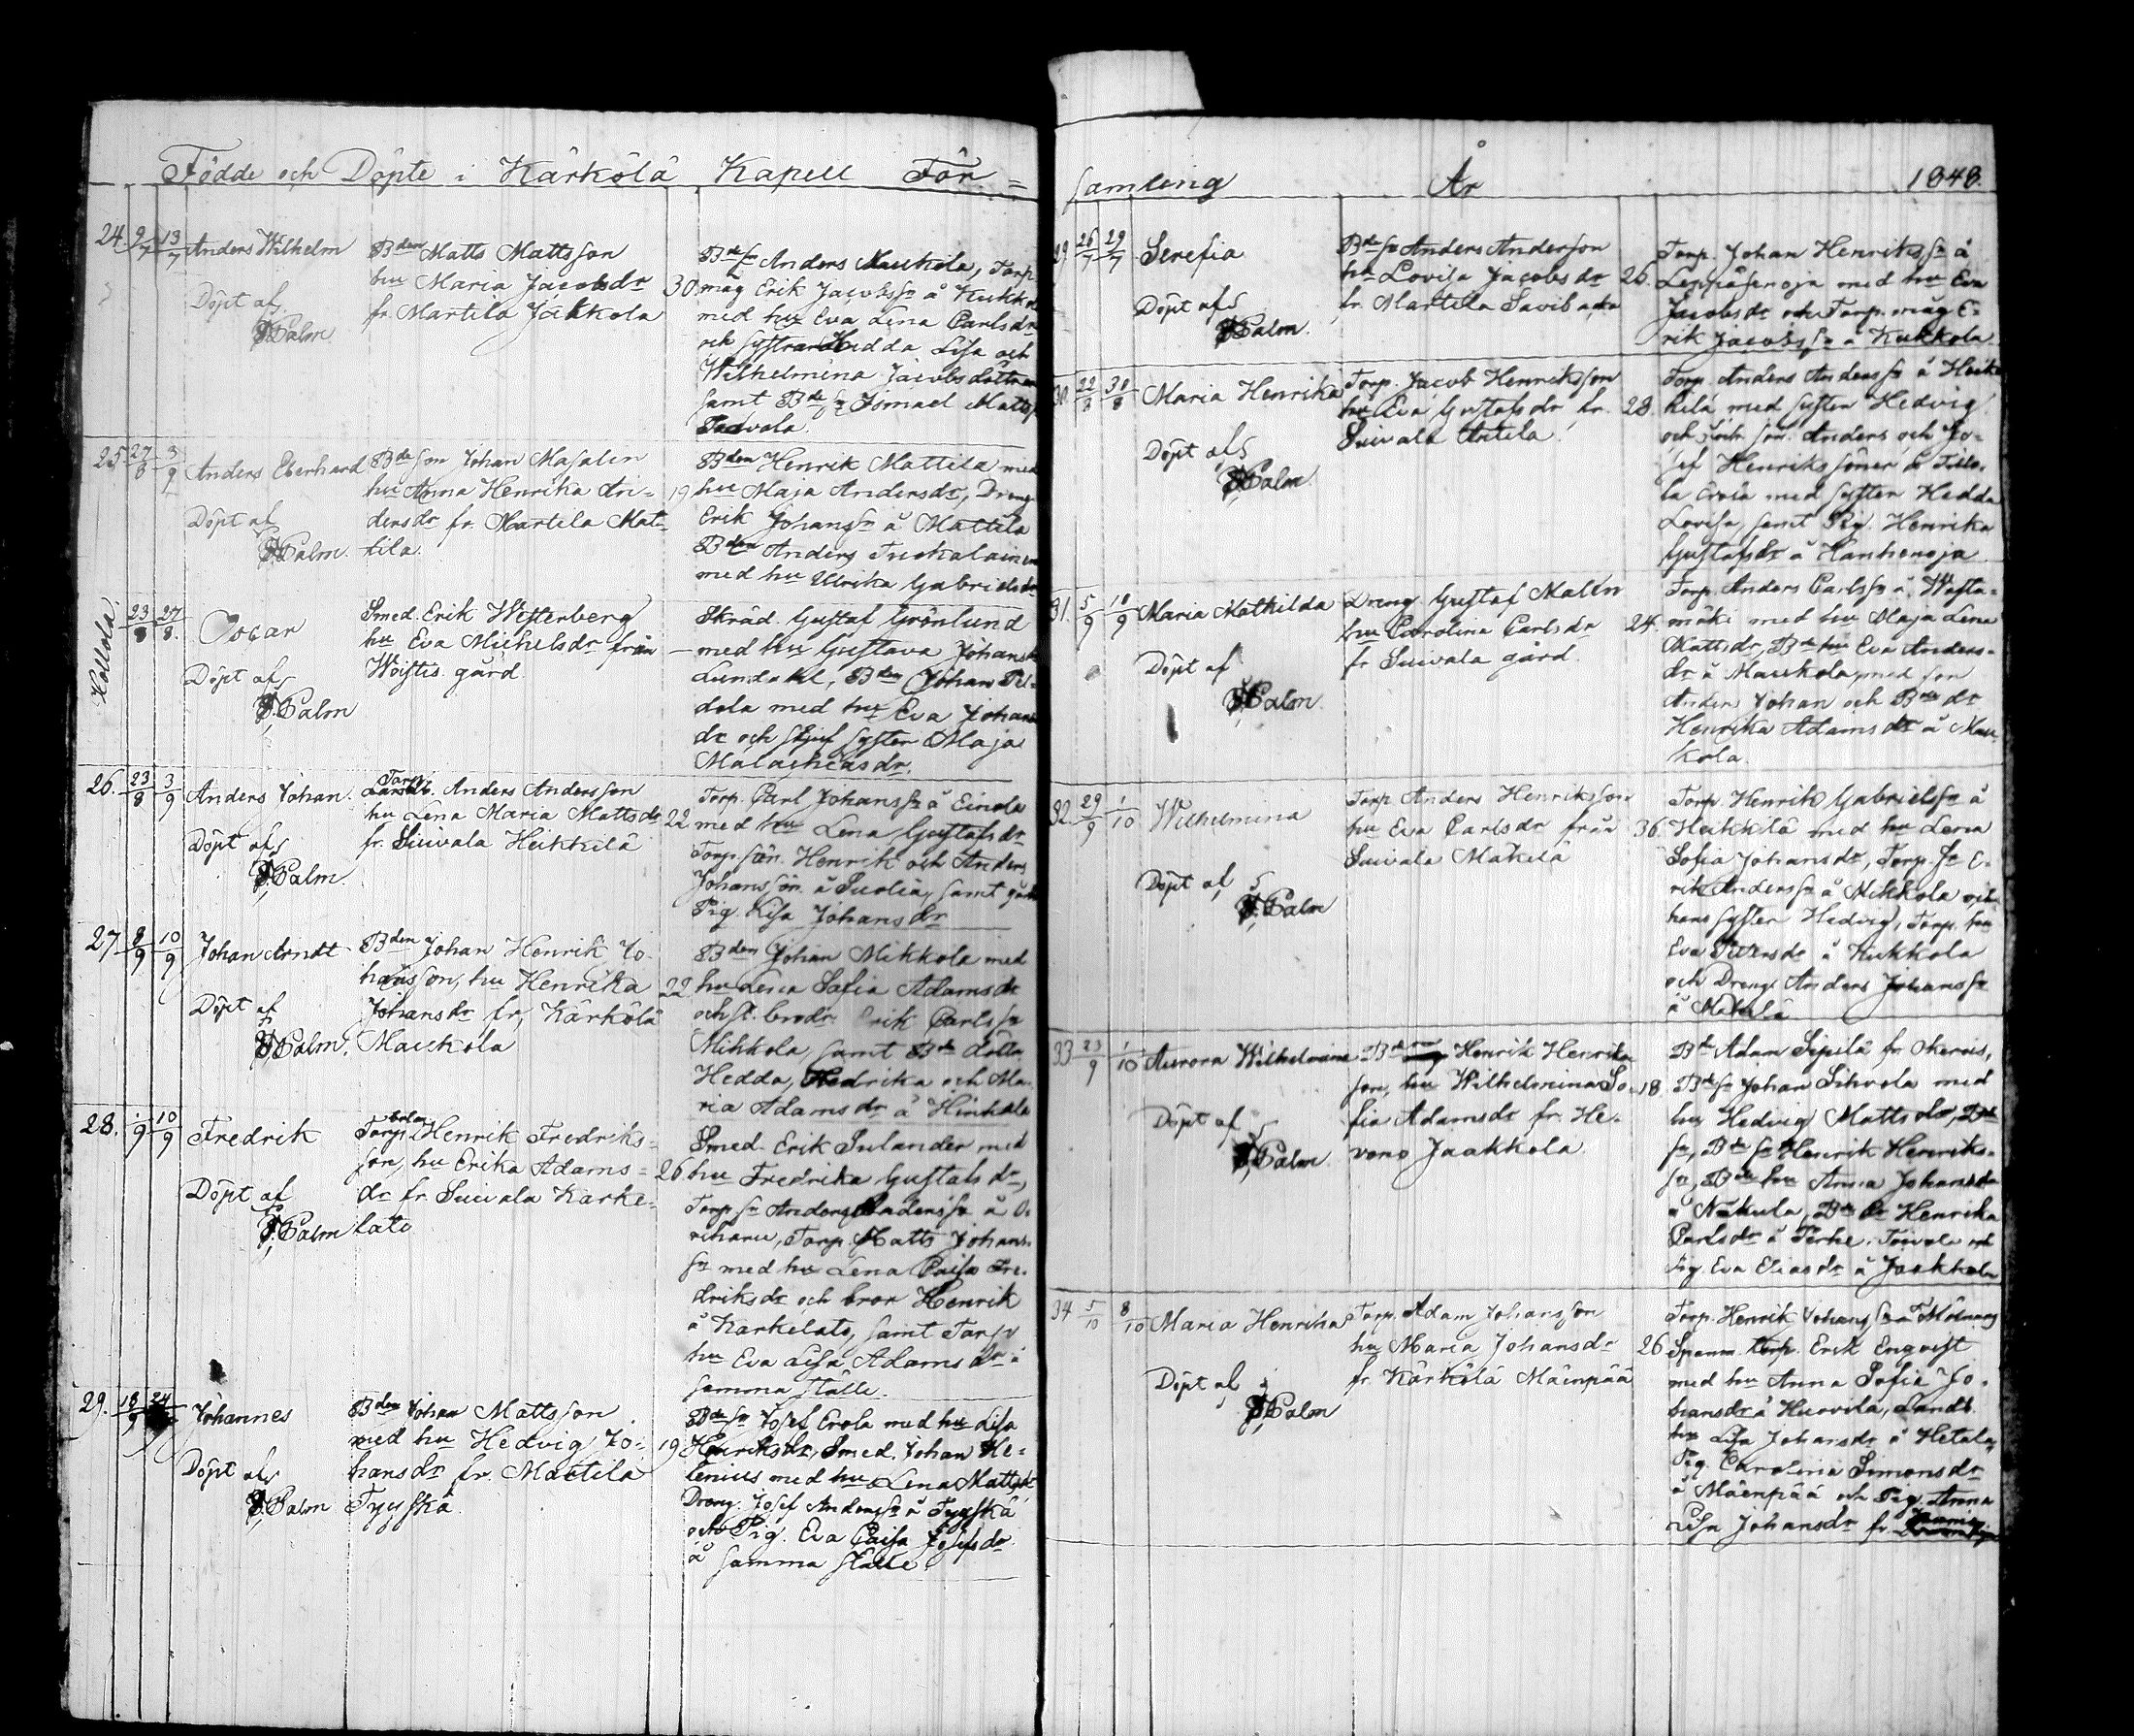 Födde och Döpte i Kärkölä Kapell För=
24. 9/7 13/7 Anders Wilhelm
Döpt af
Palm
Bden Matts Mattsson
hu Maria Jacobsdr
fr. Martila Jakkola
30
Bdesr Anders Maukola, Torp.
måg Erik Jacobssr å Kukkola
med hu Eva Lena Carlsdr
och systrar Hedda Lisa och
Wilhelmina Jacobsdöttrar
samt Bdesr Ismael Matts
25. 27/8 3/9 Anders Eberhard
Döpt af
Palm.
Bdeson Johan Masalin
hu Anna Henrika An=
dersdr fr. Martela Mat=
tila.
19
Bden Henrik Mattila med
hu Maja Andersdr, Dreng
Erik Johanssr å Mattila
Bden Anders Tuokalainen
med hu Ulrika Gabrielsdr
Hollola. 23/8 27/8. Oscar
Döpt af
Palm
Smed. Erik Westerberg
hu Eva Michelsdr från
Woistis gård.
Skräd. Gustaf Grönlund
med hu Gustava Johansdr
Lunda kl, Bden Johan Pel=
dola med hu Eva Johans
dr och syster Maja
Malachiasdr.
26. 23/8 3/9 Anders Johan.
Döpt af
Palm.
Torp. Anders Andersson
hu Lena Maria Mattsdr
fr. Suivala Heikkilä
22
Torp. Carl Johanssr å Einola
med hu Lena Gustafsdr
Torp. sön. Henrik och Anders
Johanssön. å Suolia, samt
Pig. Lisa Johansdr
27. 8/9 10/9 Johan Arndt
Döpt af
Palm.
Bden Johan Henrik Jo-
hansson, hu Henrika
Johansdr fr. Kärkölä
Maukola
22
Bden Johan Mikkola med
hu Lena Sofia Adamsdr
och brodr. Erik Carlssr
Mikkola, samt Bde dottr.
Hedda, Fredrika och Ma-
ria Adamsdr å Hinkala
28. 1/9 10/9 Fredrik
Döpt af
Palm
Torp. Henrik Fredriks=
son, hu Erika Adams=
dr fr. Suivala Karke=
lato
26
Smed. Erik Sulander med
hu Fredrika Gustafsdr,
Torp. sr Anders Anderssr å O-
riharu, Torp. Matts Johans-
sr med hu Lena Caisa Fre-
driksdr och bror Henrik
å Karkelato, samt Torp.
hu Eva Lisa Adamsdr å
samma ställe.
29. 18/9 24/9 Johannes
Döpt af
Palm
Bden Johan Mattsson
med hu Hedvig Jo-
hansdr fr. Mattila
Tyyskä
19
Bdesr Josef Erola med hu Lisa
Henriksdr, Smed. Johan He-
lenius med hu Lena Mattsdr
Dreng. Josef Anderssr å Tyyskä
och Pig. Eva Caisa Josefsdr
å samma ställe.
samling År 1848.
29. 26/7 29/7 Serefia
Döpt af
Palm.
Bdesr Anders Anderson
hu Lovisa Jacobsdr
fr. Martila
26.
Torp. Johan Henrikssr å
Leppäsenoja med hu Eva
Jacobsdr och Torp. måg E-
rik Jacobssr å Kukkola
30. 22/8 30/8 Maria Henrika
Döpt af
Palm.
Torp. Jacob Henriksson
hu Eva Gustafsdr fr.
Suivala Antila.
28.
Torp. Anders Anderssr å Heik
kilä med syster Hedvig
och Anders och Jo-
sef Henrikssöner
med syster Hedda
Lovisa, samt Pig. Henrika
Gustafsdr å Hanhenoja
31. 5/9 10/9 Maria Mathilda
Döpt af
Palm.
Dreng. Gustaf Malén
hu Carolina Carlsdr
fr Suivala gård.
24.
Torp. Anders Carlssr å Wasta=
mäki med hu Maja Lena
Mattsdr, Bde hu Eva Anders-
dr å Maukola, med son
Anders Johan och Bde dr
Henrika Adamsdr å Mau-
kola.
32. 29/9 1/10 Wilhelmina
Döpt af
Palm
Torp. Anders Henriksson
hu Eva Carlsdr från
Suivala Makelä
36.
Torp. Henrik Gabrielssr å
Heikkilä med hu Lena
Sofia Johansdr, Torp. sr E-
rik Anderssr å Mikkola och
hans syster Hedvig, Torp. hu
Eva Petersdr å Kukkola
och Dreng. Anders Johanssr
å Makelä.
33. 23/9 1/10 Aurora Wilhelmina
Döpt af
Palm
Bde Henrik Henriks-
son, hu Wilhelmina So-
fia Adamsdr fr. He-
vono Jaakkola.
18.
Bde Adam Sipilä fr. Okerois,
Bdesr Johan Sihvola med
hu Hedvig Mattsdr,
sr, Bdesr Henrik Henriks-
sr, Bde hu Anna Johansdr
å Nakula, Bde dr Henrika
Carlsdr å Toivola och
Pig. Eva Eliasdr å Jaakkola
34. 5/10 8/10 Maria Henrika
Döpt af
Palm
Torp. Adam Johansson
hu Maria Johansdr
fr. Kärkölä Mäenpää
26
Torp. Henrik Johanssr
Spanm. Torp. Erik Enqvist
med hu Anna Sofia Jo-
hansdr å Huovila, Landb.
hu Lisa Johansdr å Hetala,
Pig. Carolina Simonsdr
å Mäenpää och Pig. Anna
Lisa Johansdr fr.